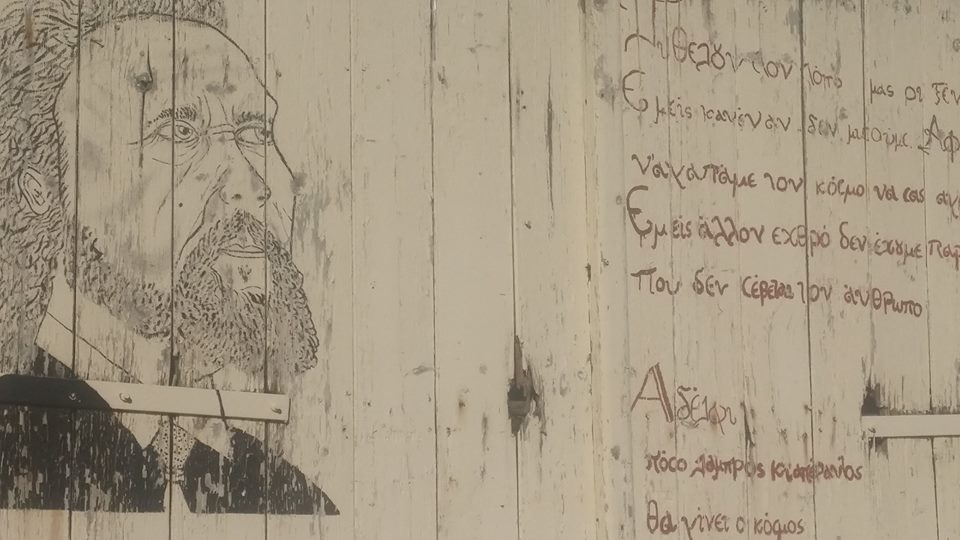 θέλουν τον τόπο μας οι ξέν
Εμείς κανέναν δεν μισούμε. Αφ
ν'αγαπάμε τον κόσμο να σας αγ
Εμείς άλλον εχθρό δεν έχουμε παρ
Που δεν σέβεται τον άνθρωπο
Αδέλφι
πόσο λαμπρός
θα γίνει ο κόσμος